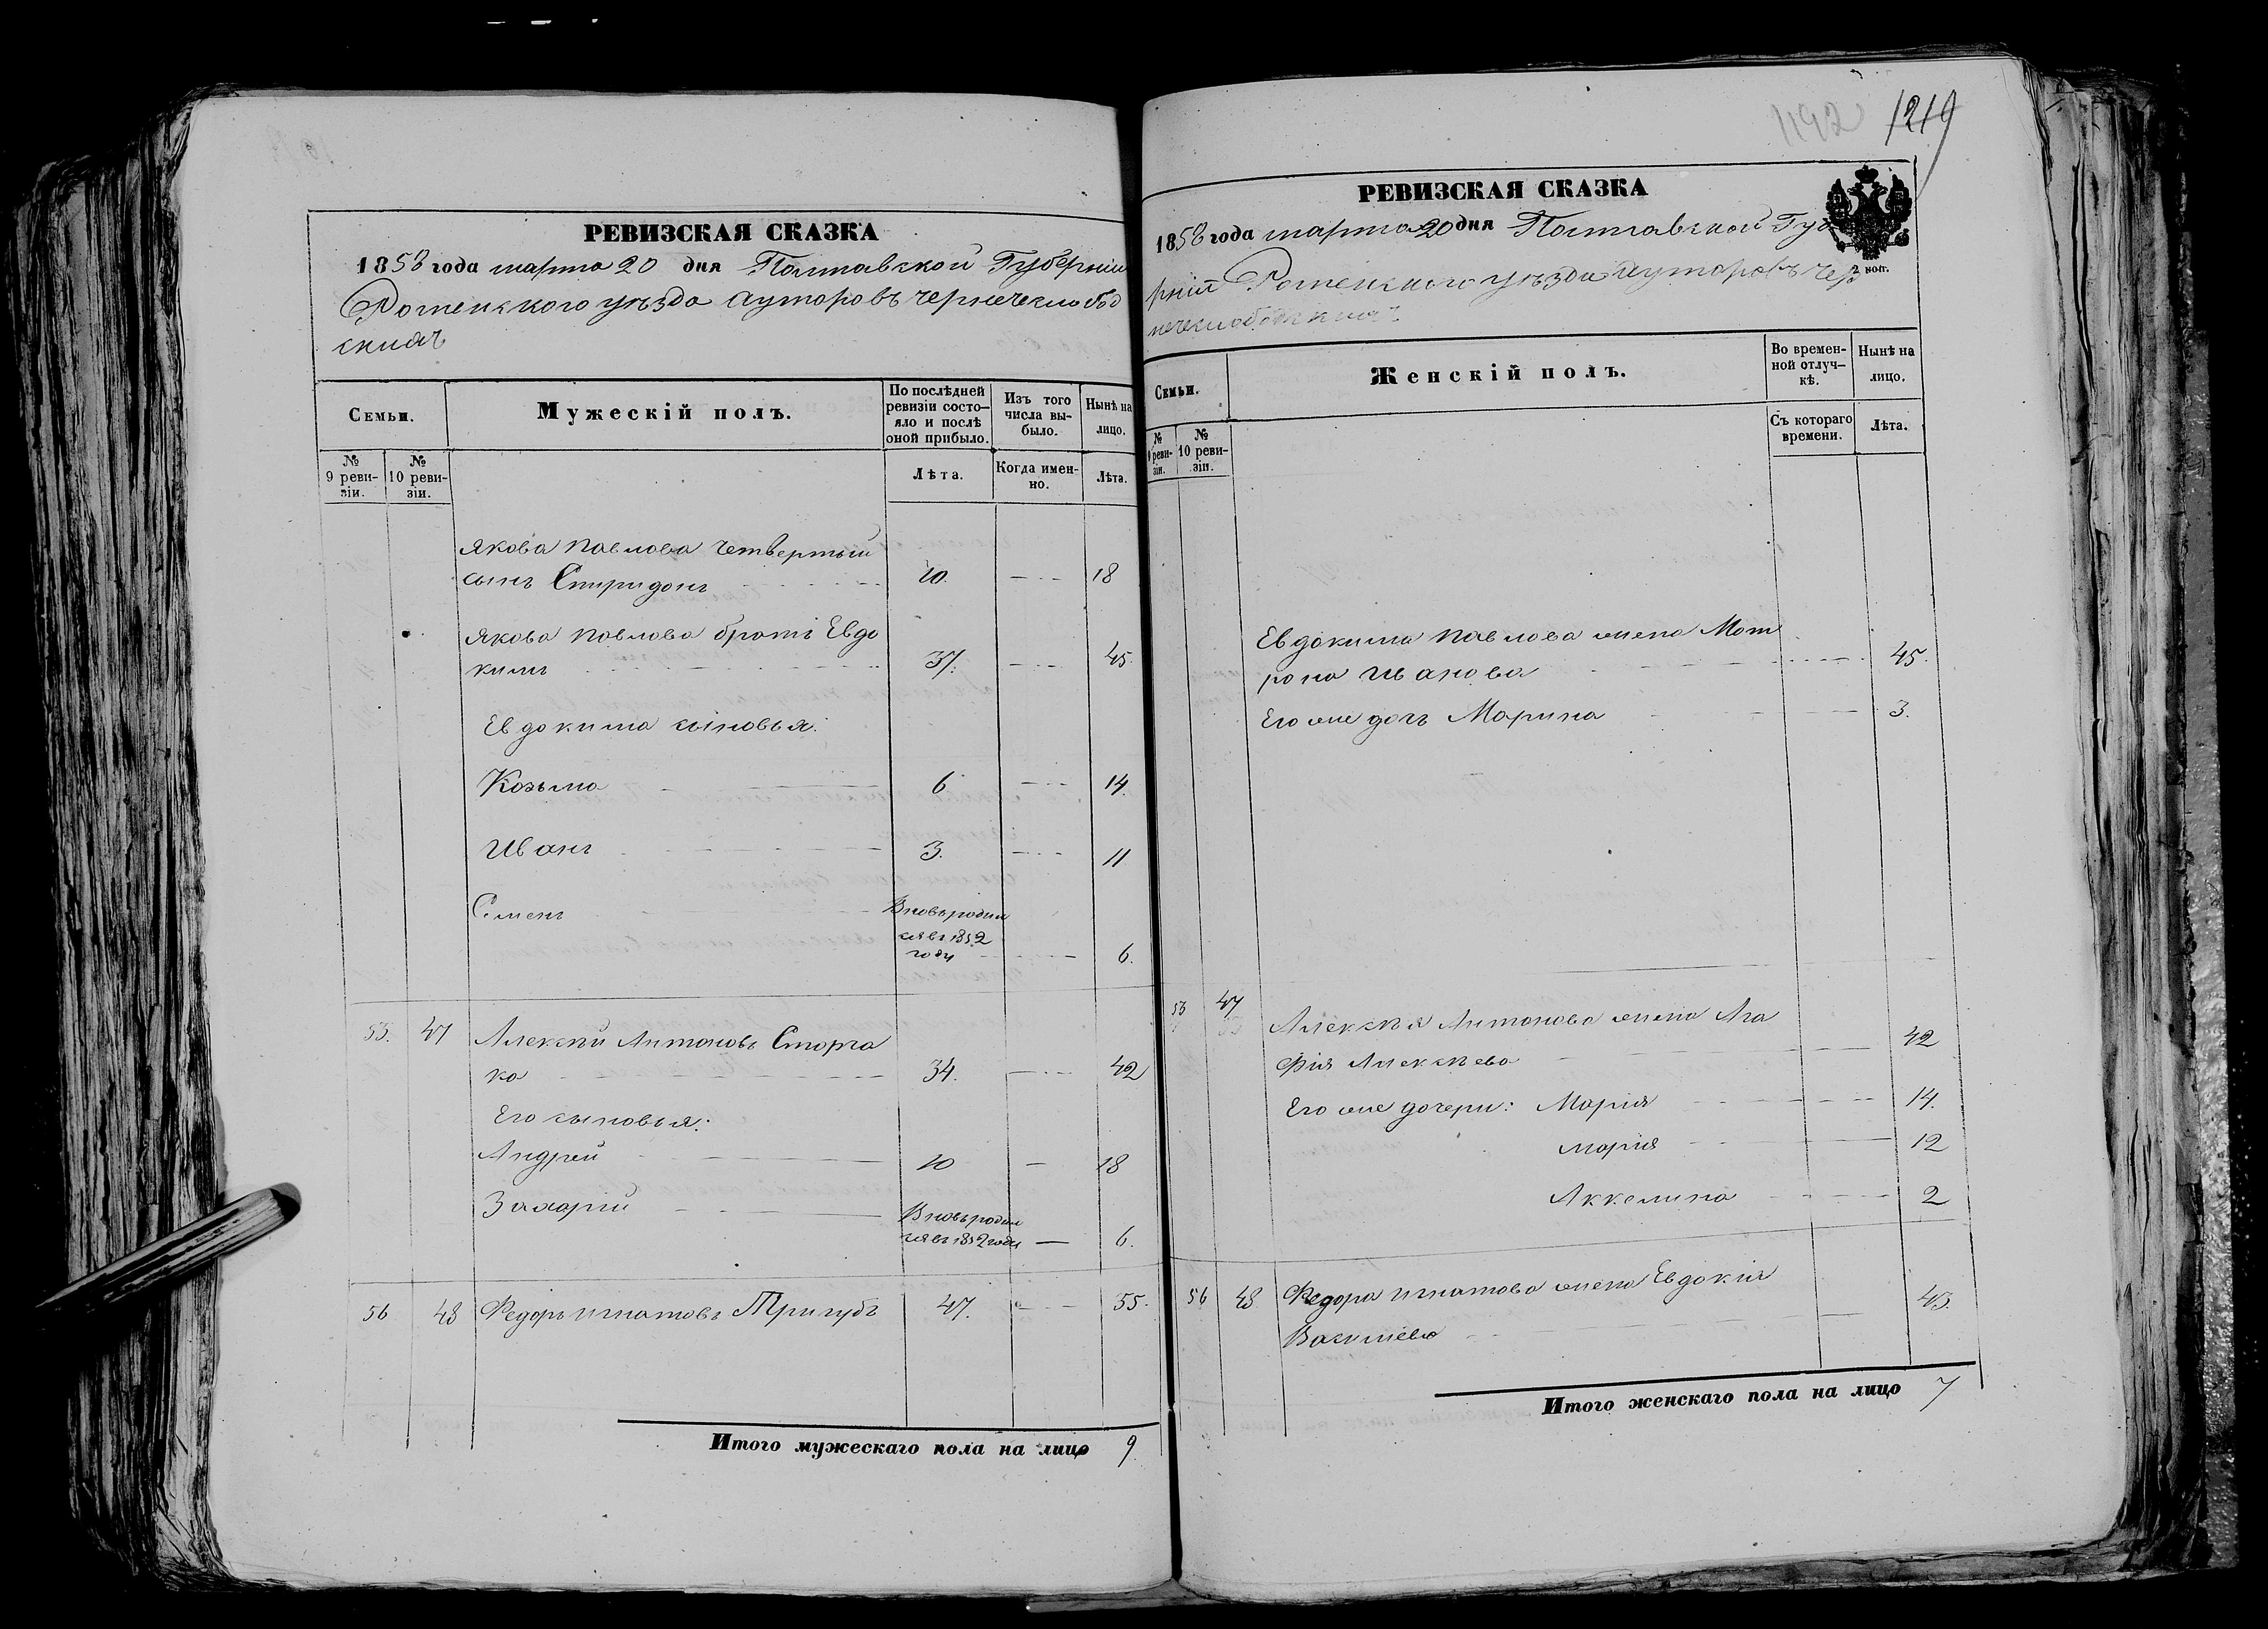 РЕВИЗСКАЯ СКАЗКА
1858 года марта 20 дня Полтавской Губерніи
Роменского уѣзда хуторовъ чернечеслобод
скихъ
Семьи.
Мужескій полъ.
По послѣдней
ревизіи состо-
яло и послѣ
оной прибыло.
Изъ того
числа вы-
было.
Нынѣ на
лицо.
№
9 реви-
зіи.
№
10 реви-
зіи.
Лѣта.
Когда имен-
но.
Лѣта.
Якова Павлова четвертый
сынъ Спиридонъ 10. 18
Якова Павлова братъ Евдо
кимъ 37. 45.
Евдокима сыновья:
Козьма 6 14.
Иванъ 3. 11
Семенъ Вновь родил
ся въ 1852
году 6.
55. 47 Алексѣй Антоновъ Сторча
ка 34. 42
Его сыновья:
Андрей 10 18
Захарій Вновь родил
ся въ 1852 году 6.
56 48 Федоръ Игнатовъ Тригубъ 47. 55.
Итого мужескаго пола на лицо 9.
1192 1219
РЕВИЗСКАЯ СКАЗКА
1858 года марта 20 дня Полтавской Губе
рніи Роменского уѣзда хуторовъ чер
нечеслободскихъ
2 коп.
Семьи.
Женскій полъ.
Во времен-
ной отлуч-
кѣ.
Нынѣ на
лицо.
№
9 реви-
зіи.
№
10 реви-
зіи.
Съ котораго
времени.
Лѣта.
Евдокима Павлова жена Мот
рона Иванова 45.
Его же дочь Марина 3.
55 47 Алексѣя Антонова жена Ага
фія Алексѣева 42
Его же дочери: Марія 14.
Марія 12
Аккелина 2
56 48 Федора Игнатова жена Евдокія
43.
Итого женскаго пола на лицо 7